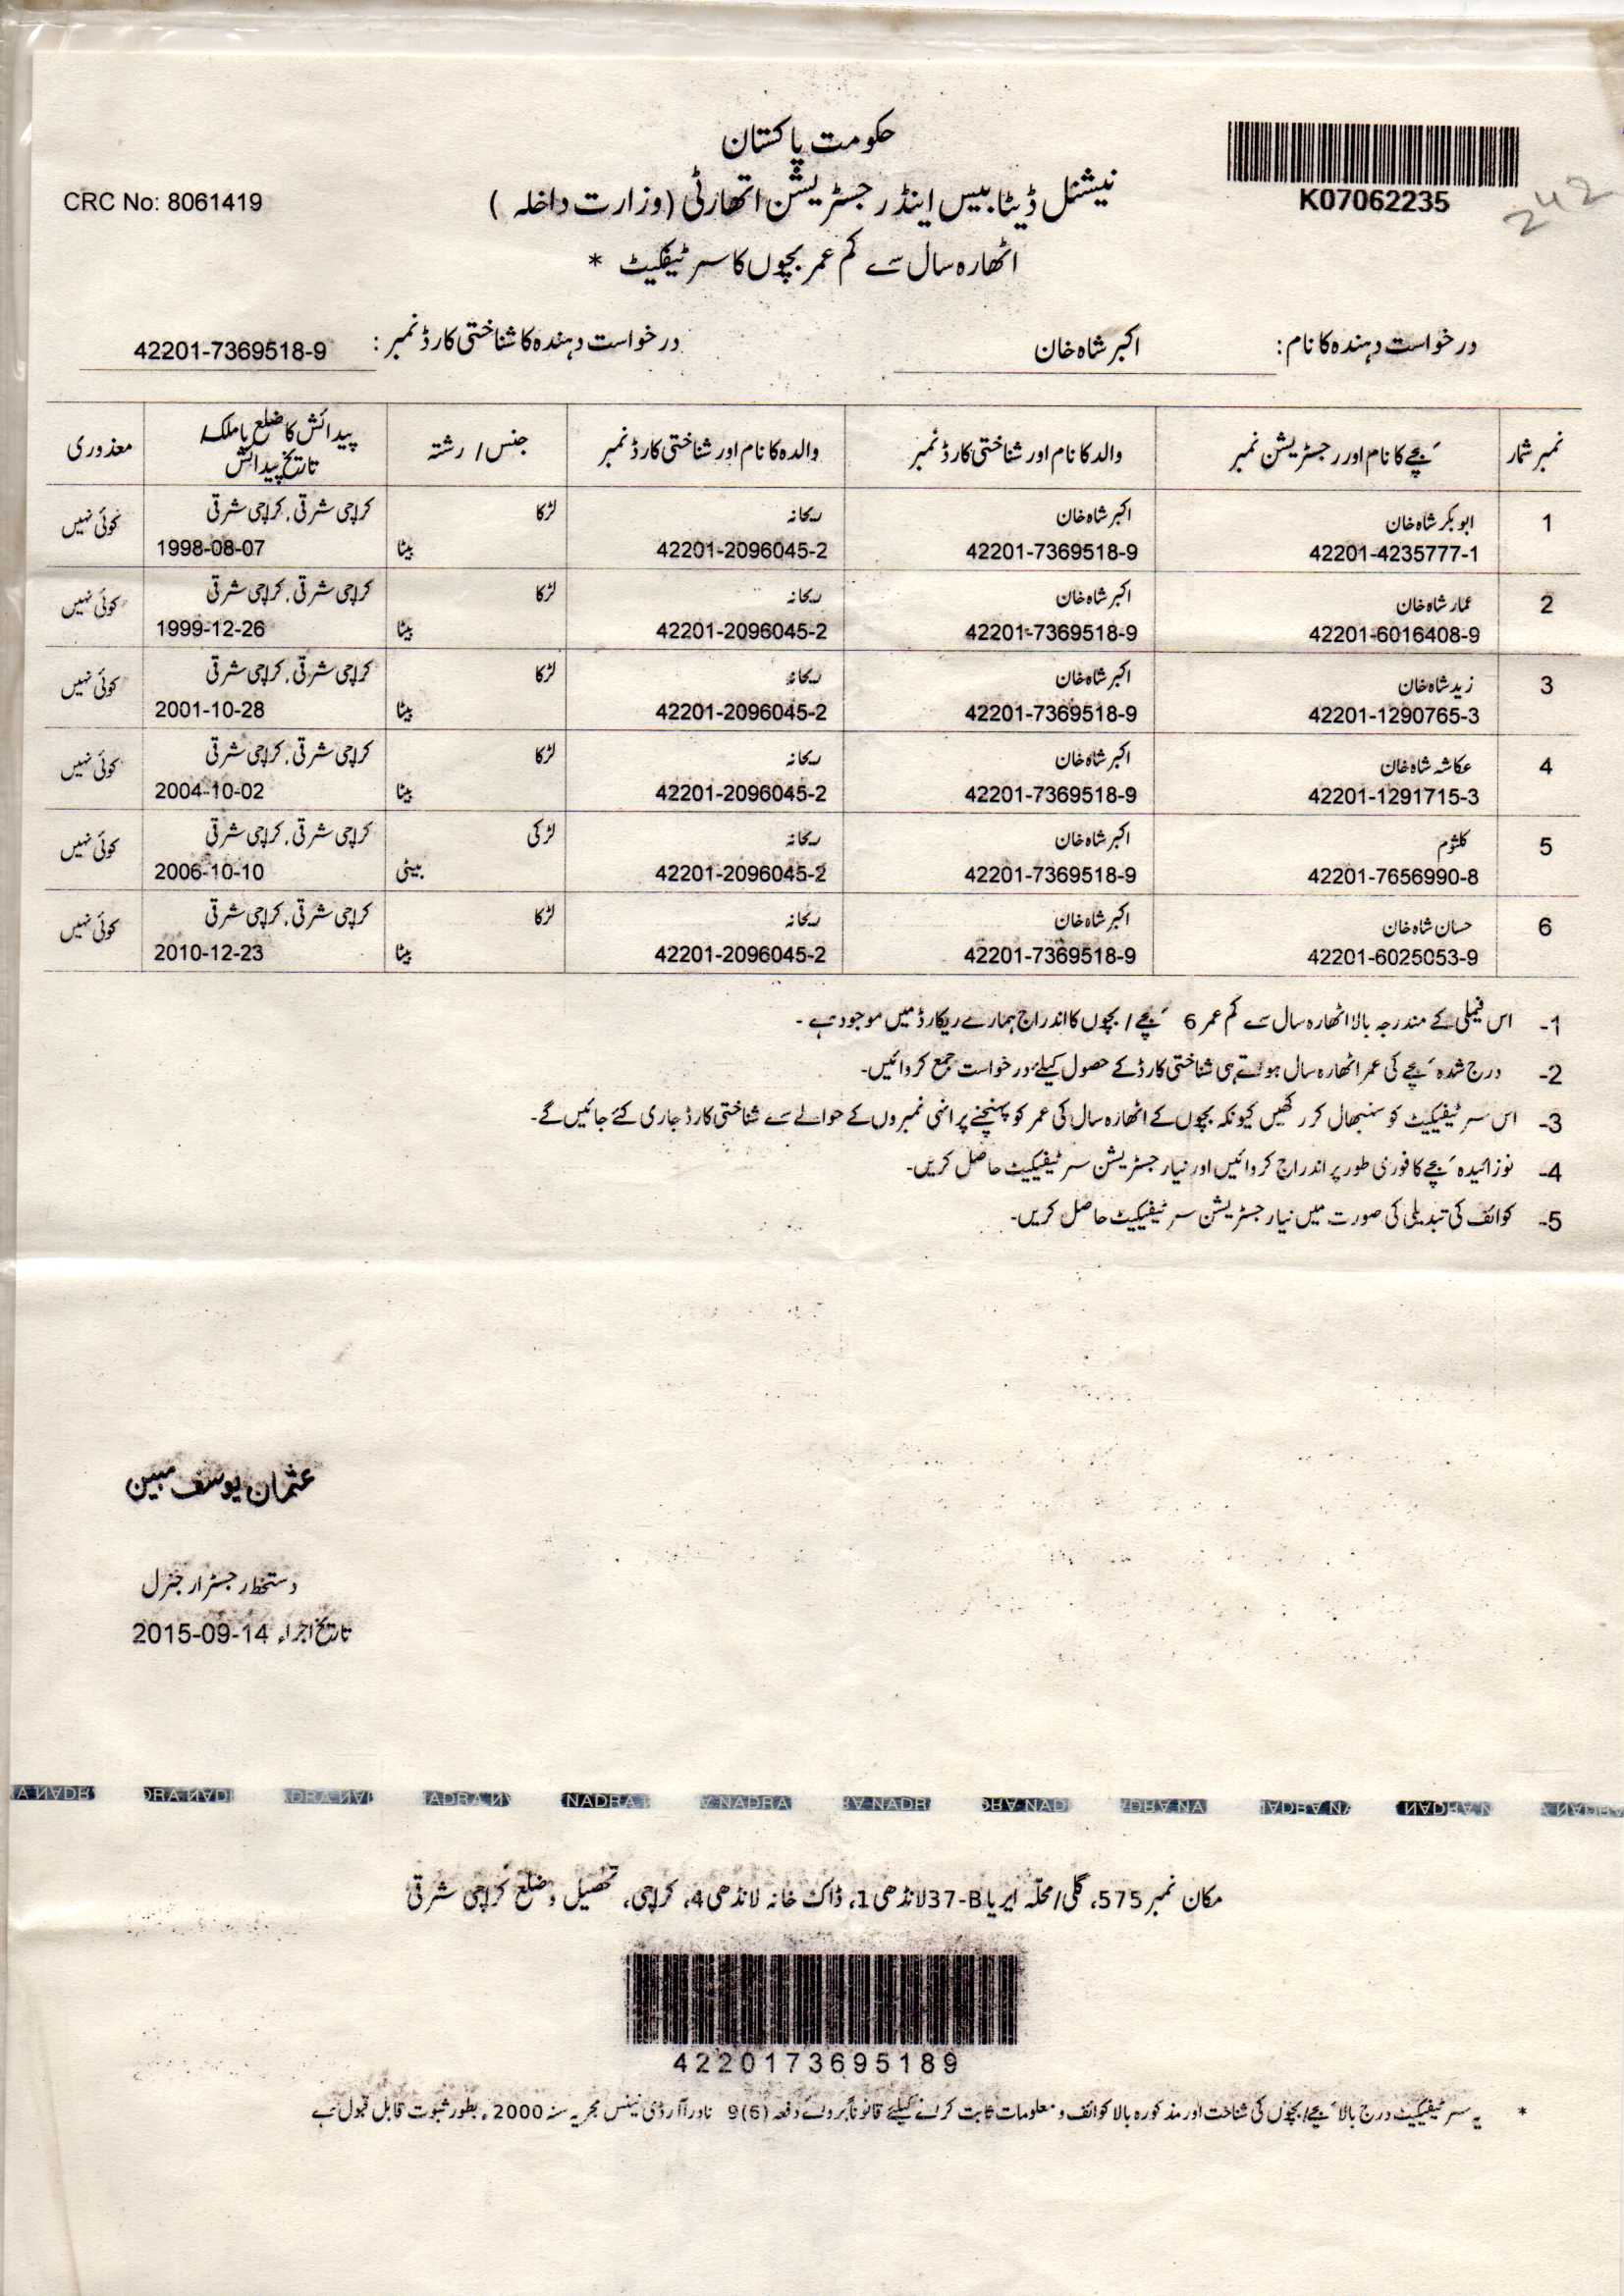 حکومت پاکستان
K07062235
242
CRC No: 8061419
نیشنل ڈیٹابیس اینڈ رجسٹریشن اتھارٹی (وزارت داخلہ )
اٹھارہ سال سے کم عمر بچوں کا سرٹیفکیٹ *
درخواست دہندہ کا نام: اکبر شاہ خان درخواست دہندہ کا شناختی کارڈ نمبر: 42201-7369518-9
نمبر شمار بچے کا نام اور رجسٹریشن نمبر والد کا نام اور شناختی کارڈ نمبر والدہ کا نام اور شناختی کارڈ نمبر جنس / رشتہ پیدائش کا ضلع یا ملک/ معذوری
تاریخ پیدائش
1 ابو بکر شاہ خان اکبر شاہ خان ریحانہ لڑکا کراچی شرقی، کراچی شرقی کوئی نہیں
42201-4235777-1 42201-7369518-9 42201-2096045-2 بیٹا 1998-08-07
2 عمار شاہ خان اکبر شاہ خان ریحانہ لڑکا کراچی شرقی، کراچی شرقی کوئی نہیں
42201-6016408-9 42201-7369518-9 42201-2096045-2 بیٹا 1999-12-26
3 زید شاہ خان اکبر شاہ خان ریحانہ لڑکا کراچی شرقی، کراچی شرقی کوئی نہیں
42201-1290765-3 42201-7369518-9 42201-2096045-2 بیٹا 2001-10-28
4 عکاشہ شاہ خان اکبر شاہ خان ریحانہ لڑکا کراچی شرقی، کراچی شرقی کوئی نہیں
42201-1291715-3 42201-7369518-9 42201-2096045-2 بیٹا 2004-10-02
5 کلثوم اکبر شاہ خان ریحانہ لڑکی کراچی شرقی، کراچی شرقی کوئی نہیں
42201-7656990-8 42201-7369518-9 42201-2096045-2 بیٹی 2006-10-10
6 حسان شاہ خان اکبر شاہ خان ریحانہ لڑکا کراچی شرقی، کراچی شرقی کوئی نہیں
42201-6025053-9 42201-7369518-9 42201-2096045-2 بیٹا 2010-12-23
1- اس فیملی کے مندرجہ بالا اٹھارہ سال سے کم عمر 6 بچے / بچوں کا اندراج ہمارے ریکارڈ میں موجود ہے ۔
2- درج شدہ بچے کی عمر اٹھارہ سال ہوتے ہی شناختی کارڈ کے حصول کیلئے درخواست جمع کروائیں۔
3- اس سرٹیفیکیٹ کو سنبھال کر رکھیں کیونکہ بچوں کے اٹھارہ سال کی عمر کو پہنچنے پر انہی نمبروں کے حوالے سے شناختی کارڈ جاری کئے جائیں گے۔
4- نوزائیدہ بچے کا فوری طور پر اندراج کروائیں اور نیا رجسٹریشن سرٹیفیکیٹ حاصل کریں۔
5- کوائف کی تبدیلی کی صورت میں نیا رجسٹریشن سرٹیفیکیٹ حاصل کریں۔
عثمان یوسف مبین
دستخط رجسٹرار جنرل
تاریخ اجراء 2015-09-14
NADRA NADRA NADRA NADRA NADRA NADRA NADRA NADRA NADRA NADRA NADRA NADRA
مکان نمبر 575، گلی/محلہ ایریا 37-B لانڈھی 1، ڈاک خانہ لانڈھی 4، کراچی، تحصیل و ضلع کراچی شرقی
4220173695189
* یہ سرٹیفیکیٹ درج بالا بچے/بچوں کی شناخت اور مذکورہ بالا کوائف و معلومات ثابت کرنے کیلئے قانوناً بروئے دفعہ 9(6) نادرا آرڈی نینس مجریہ سنہ 2000ء بطور ثبوت قابل قبول ہے